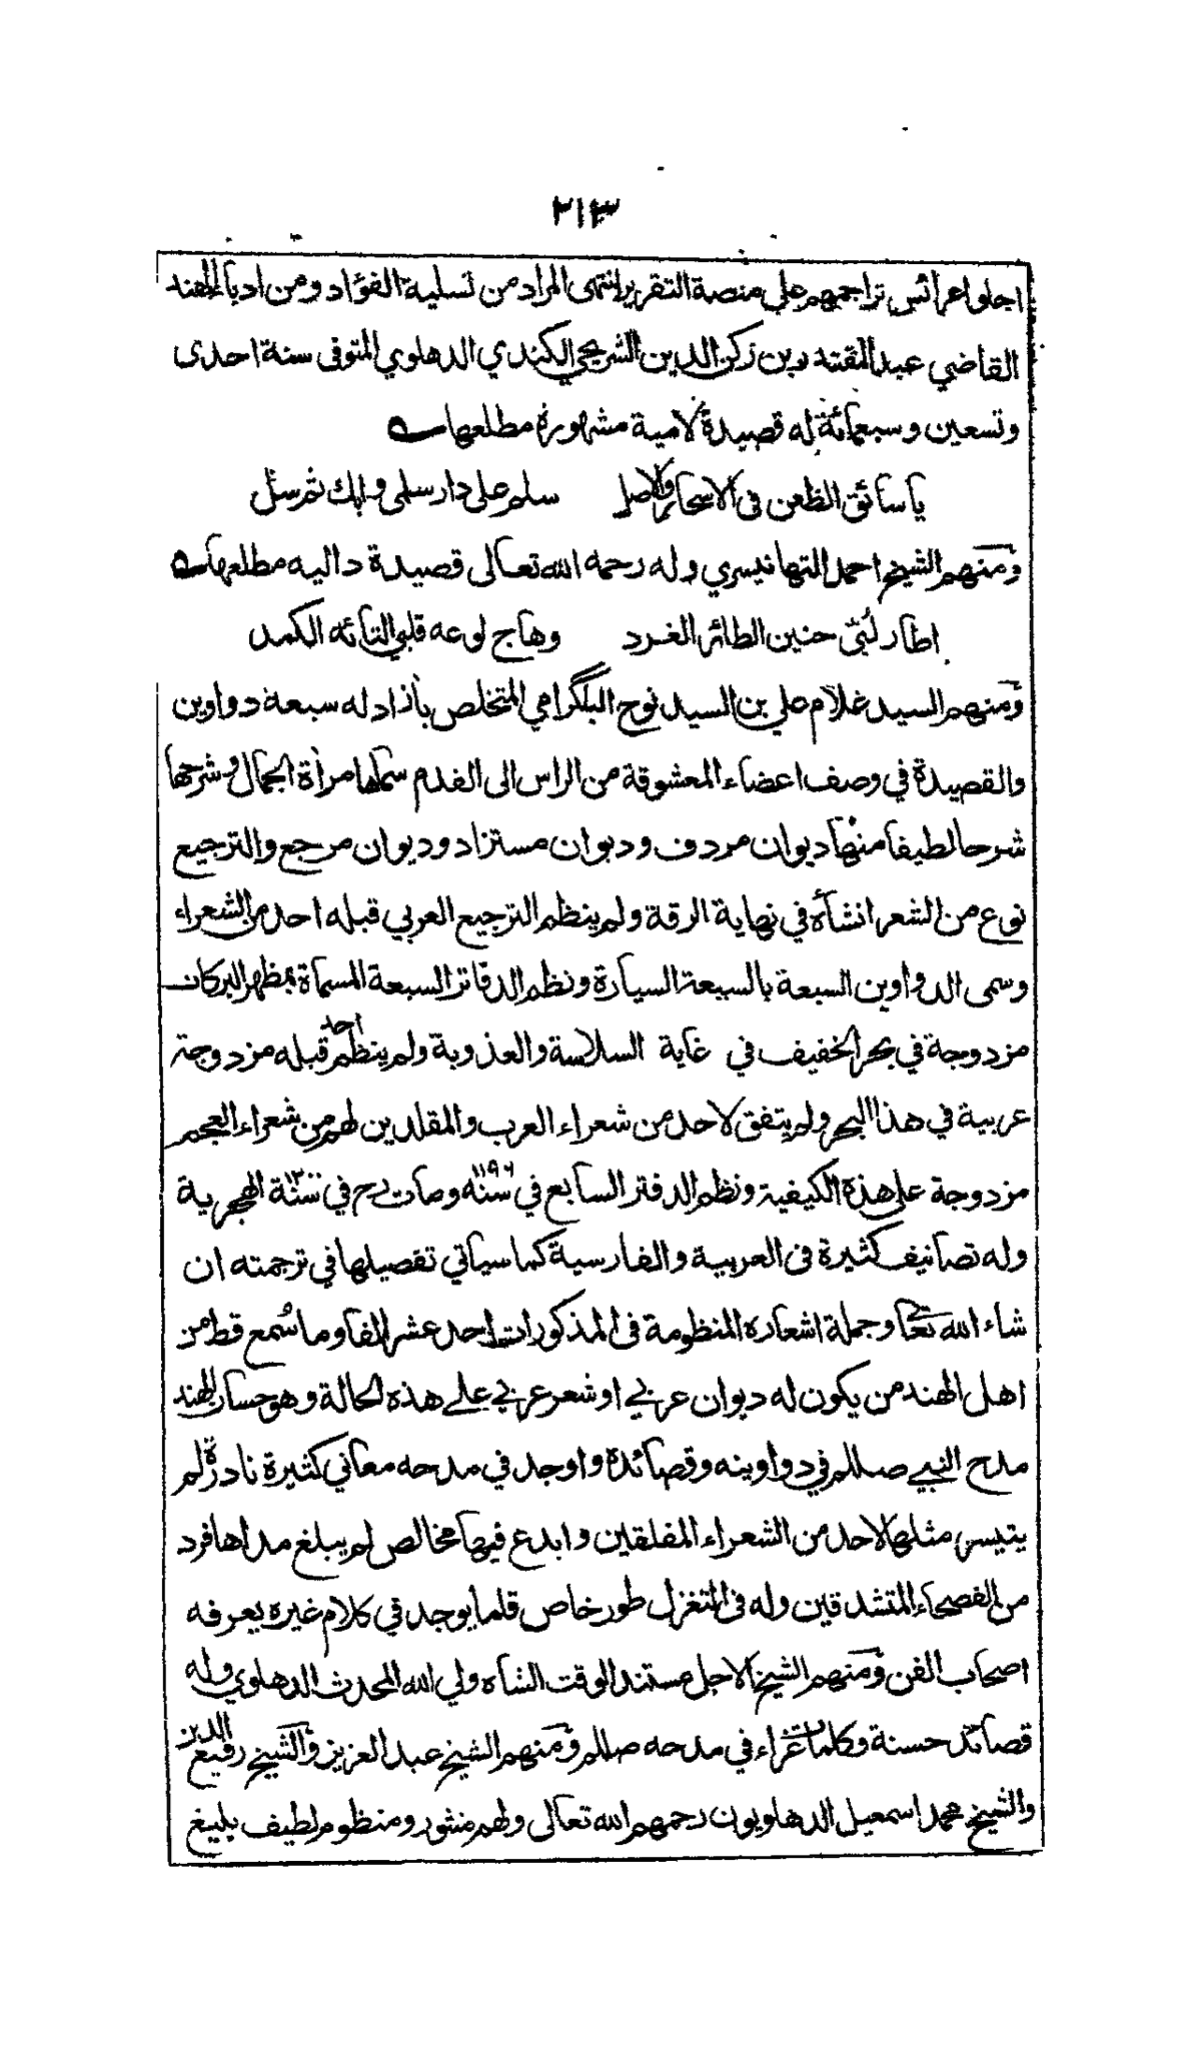 ٢١٣
اجلوا عرائس تراجمهم على منصة التقرير انتهى المراد من تسلية الفؤاد ومن ادباء الهند
القاضي عبد المقتدر بن ركن الدين الشريحي الكندي الدهلوي المتوفى سنة احدى
وتسعين وسبعمائة له قصيدة لامية مشهورة مطلعها
يا سائق الظعن فى الاسحار والاصل سلم على دار سلمى وابك ثم سل
ومنهم الشيخ احمد التهانيسري وله رحمه الله تعالى قصيدة داليه مطلعها
اطار لُبّى حنين الطائر الغرد وهاج لوعه قلبي التائه الكمد
ومنهم السيد غلام علي بن السيد نوح البلگرامي المتخلص بآزاد له سبعة دواوين
والقصيدة في وصف اعضاء المعشوقة من الراس الى القدم سماها مرأة الجمال وشرحها
شرحا لطيفا منها ديوان مردف وديوان مستزاد وديوان مرجع والترجيع
نوع من الشعر انشأه في نهاية الرقة ولم ينظم الترجيع العربي قبله احد من الشعراء
وسمى الدواوين السبعة بالسبعة السيارة ونظم الدفاتر السبعة المسماة بمظهر البركات
مزدوجة في بحر الخفيف في غاية السلاسة والعذوبة ولم ينظم احد قبله مزدوجة
عربية في هذا البحر ولم يتفق لاحد من شعراء العرب والمقلدين لهم من شعراء العجم
مزدوجة على هذه الكيفية ونظم الدفتر السابع في سنه ١١٩٦ ومات رح في سنة ١٢٠٠ الهجرية
وله تصانيف كثيرة فى العربية والفارسية كما سياتي تفصيلها في ترجمته ان
شاء الله تعالى وجملة اشعاره المنظومة فى المذكورات احد عشر الفا وما سُمع قط من
اهل الهند من يكون له ديوان عربي او شعر عربي على هذه الحالة وهو حسان الهند
مدح النبي صللم في دواوينه وقصائده واوجد في مدحه معاني كثيرة نادرة لم
يتيسر مثلها لاحد من الشعراء المفلقين وابدع فيها مخالص لم يبلغ مداها فرد
من الفصحاء المتشدقين وله فى التغزل طور خاص قلما يوجد في كلام غيره يعرفه
اصحاب الفن ومنهم الشيخ الاجل مستند الوقت الشاه ولي الله المحدث الدهلوي وله
قصائد حسنة وكلمات غراء في مدحه صللم ومنهم الشيخ عبد العزيز والشيخ رفيع الدين
والشيخ محمد اسمعيل الدهلويون رحمهم الله تعالى ولهم منثور ومنظوم لطيف بليغ